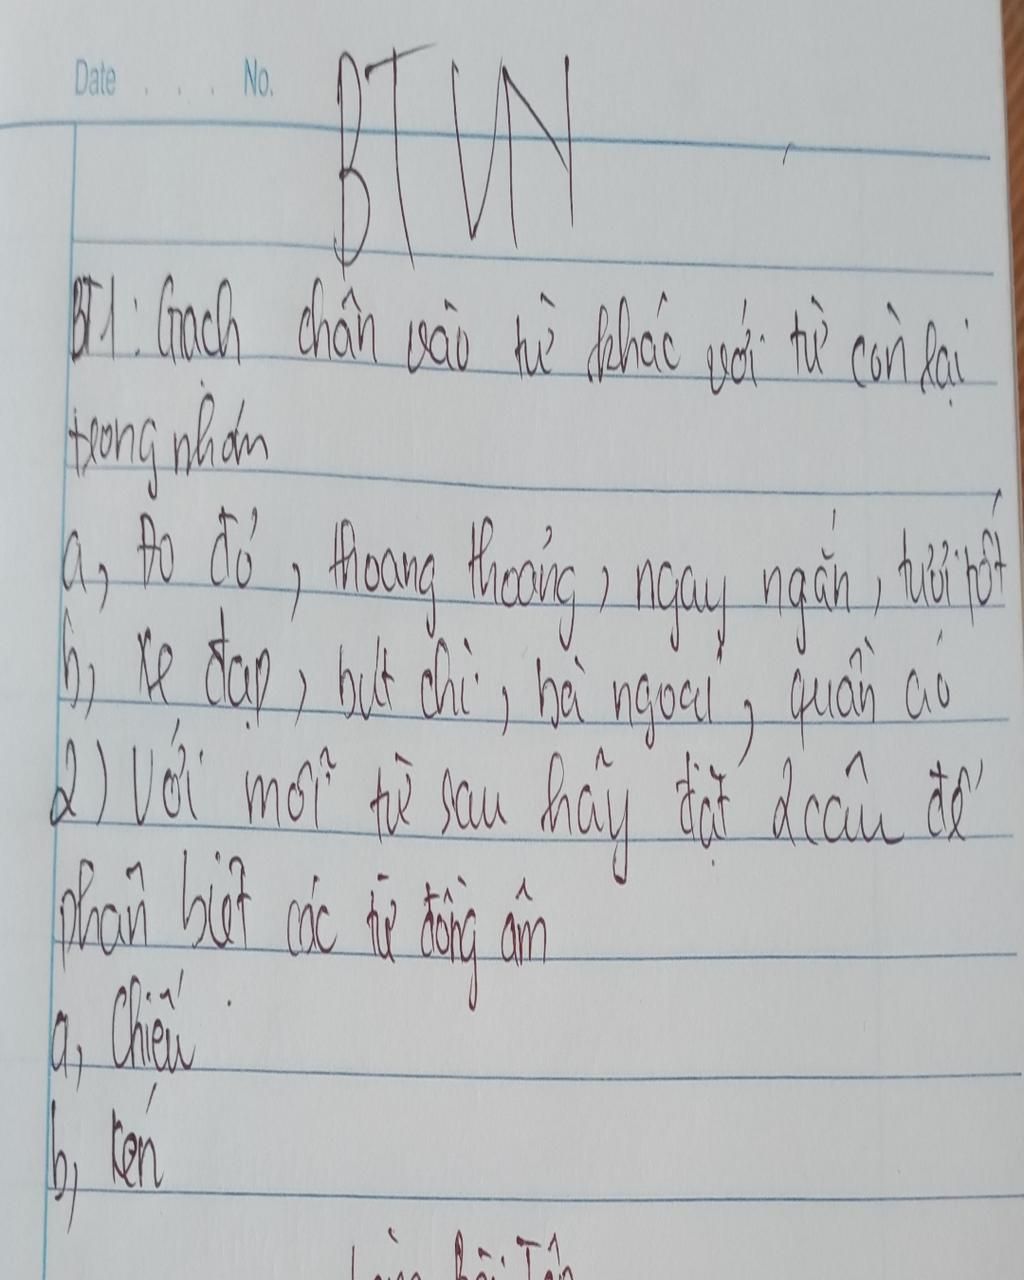 Date . . . No.
BTVN
BT1: Gạch chân vào từ khác với từ còn lại
trong nhóm
a, đo đỏ, thoang thoảng, ngay ngắn, tươi tốt
b, xe đạp, bút chì, bà ngoại, quần áo
2) Với mỗi từ sau hãy đặt 2 câu để
phân biệt các từ đồng âm
a, Chiếu
b, Kén